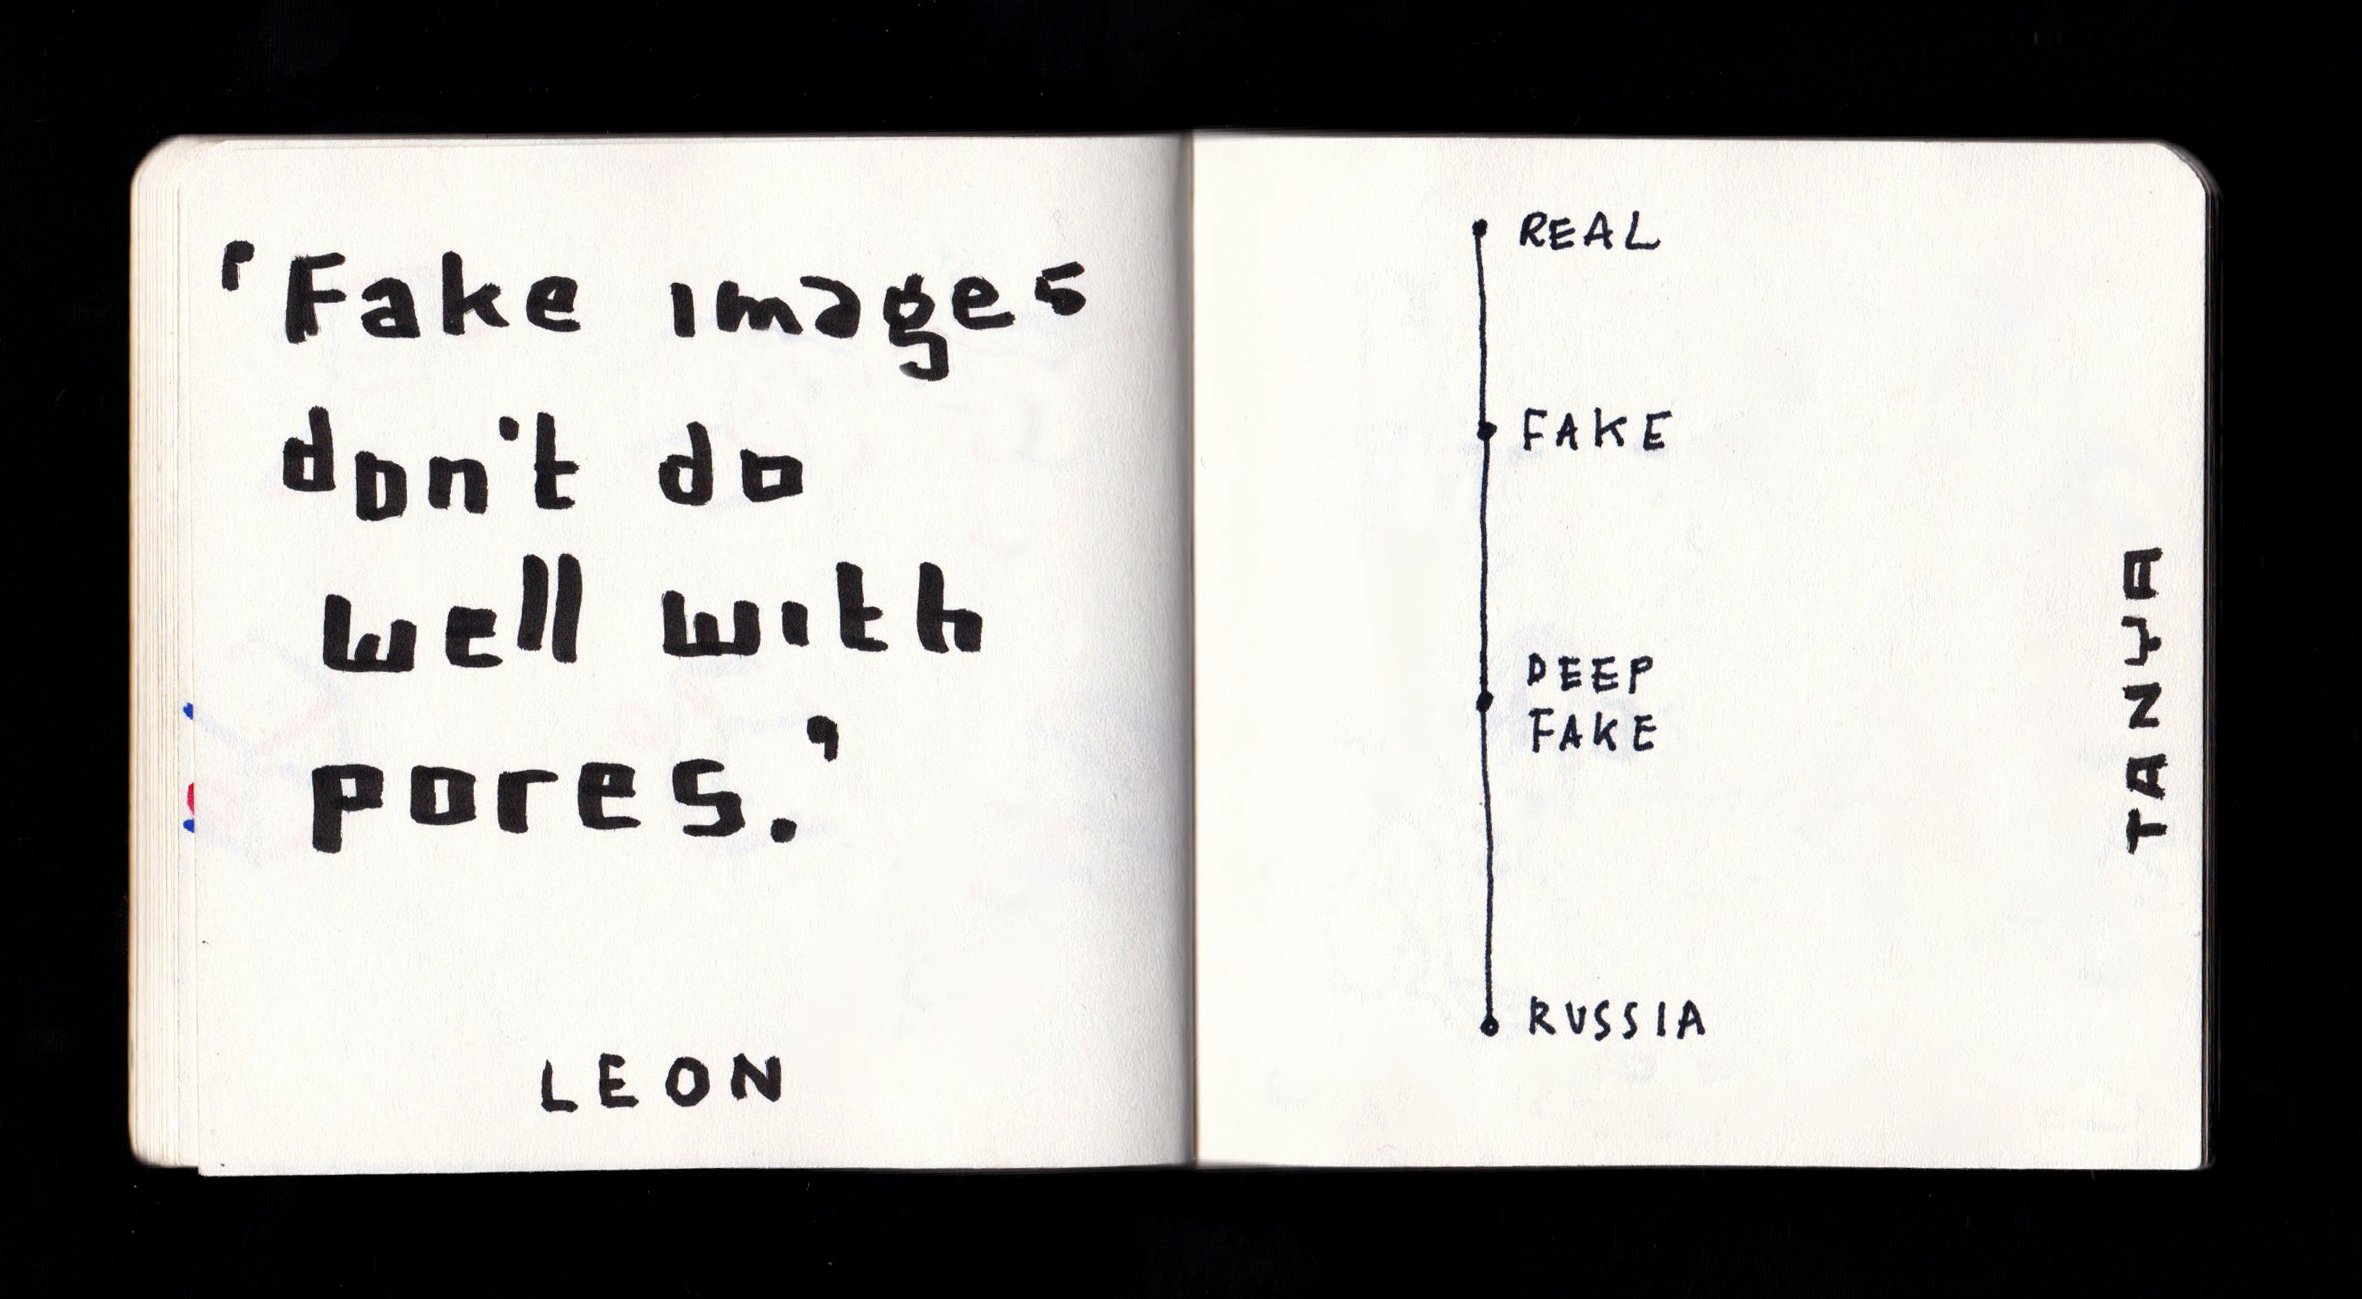 'Fake images
don't do
well with
pores.'
LEON
REAL
FAKE
DEEP
FAKE
RUSSIA
TANYA